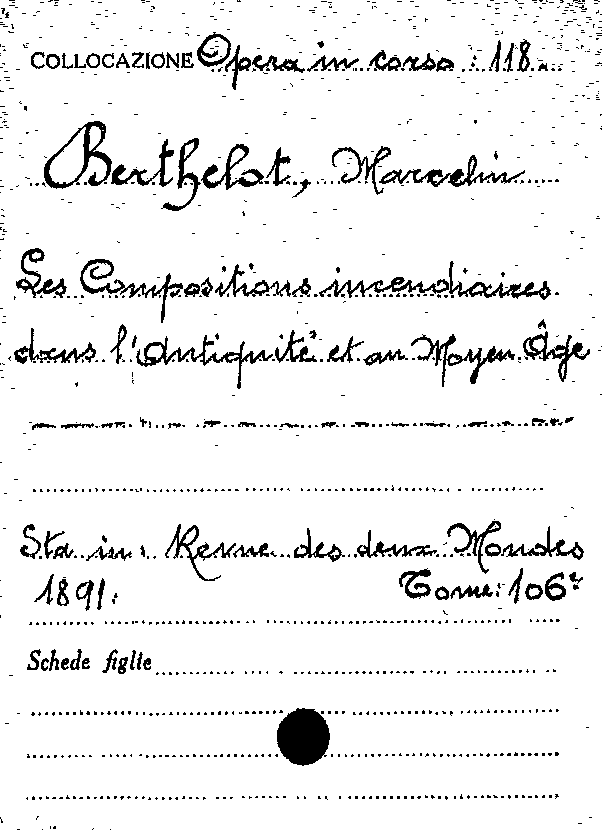 COLLOCAZIONE Opera in corso : 118.
Berthelot, Marcelin
Les Compositions incendiaires
dans l'Antiquité et au Moyen Âge
Sta in: Revue des deux Mondes
1891. Tome: 106e
Schede figlie